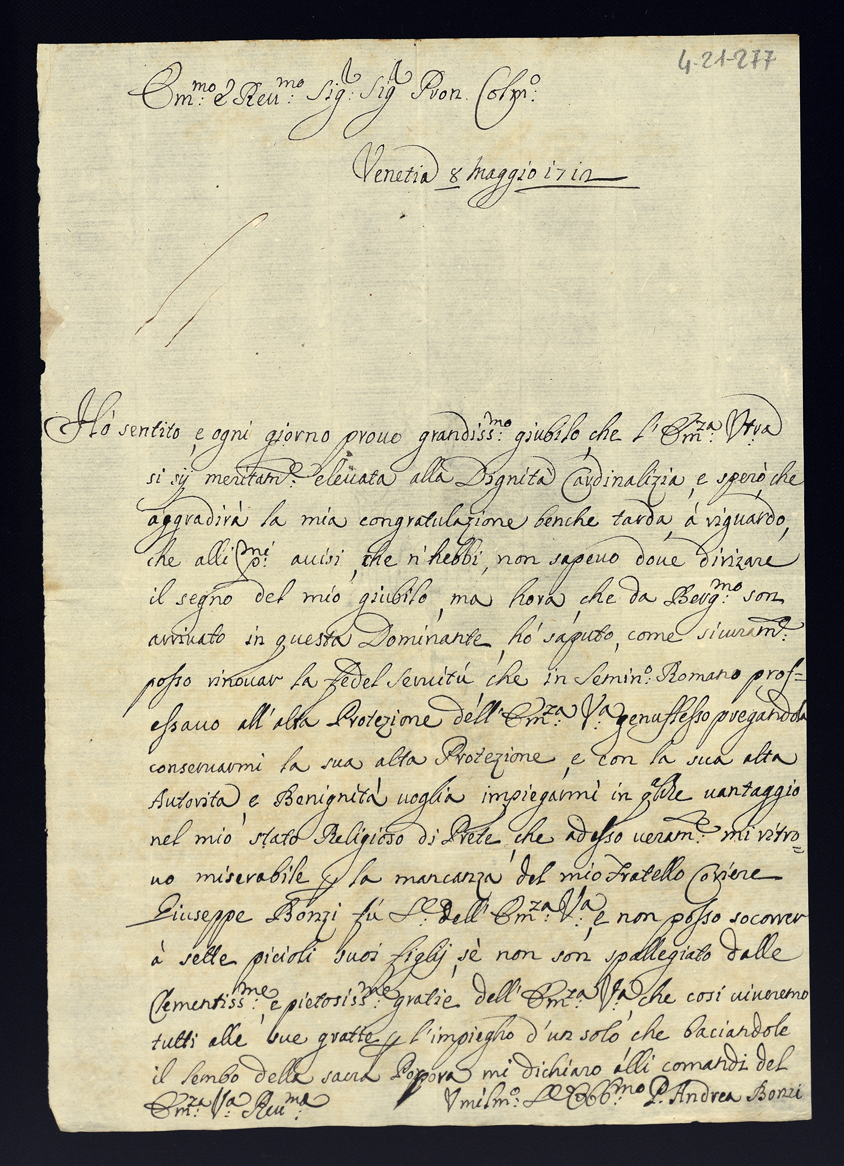 4-21-277
Em:mo e Reu:mo Sig:r Sig:r Pron. Colmo:
Venetia 8 Maggio 1712
Hò sentito, e ogni giorno prouo grandiss:mo giubilo, che l'Em:za Vtra
si sij meritam:te eleuata alla Dignità Cardinalizia, e sperò, che
aggradirà la mia congratulazione benche tarda, à riguardo,
che alli p:mi auisi, che n'hebbi, non sapeuo doue dirizare
il segno del mio giubilo, ma hora, che da Berg:mo son
arriuato in questa Dominante, hò saputo, come sicuram:te
posso rinouar la fedel seruitù che in Semin:o Romano prof=
essauo all'alta Protezione dell'Em:za V:a genuflesso pregandola
conseruarmi la sua alta Protezione, e con la sua alta
Autorità, e Benignità uoglia impiegarmi in qlche uantaggio
nel mio stato Religioso di Prete, che adesso ueram:te mi ritro=
uo miserabile p la mancanza del mio Fratello Coriere
Giuseppe Bonzi fù Se:e dell'Em:za V:a, e non posso socorrer
à sette picioli suoi figlij, sè non son spallegiato dalle
Clementiss:me, e pietosiss:me gratie dell'Em:za V:a, che cosi uiueremo
tutti alle sue gratte p l'impiegho d'un solo che baciandole
il lembo della sacra Porpora mi dichiaro alli comandi del
Em:za V:a Reu:ma
Vmilm:o Se Obb:mo P. Andrea Bonzi